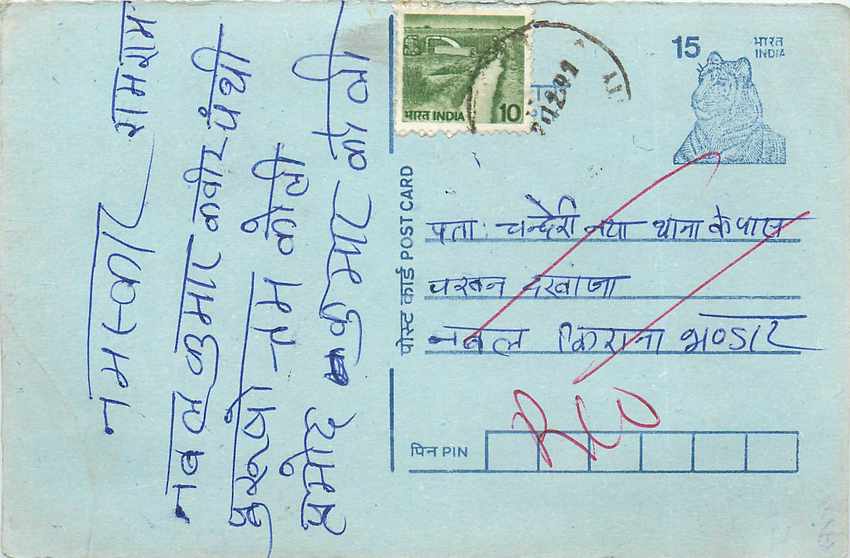 नमस्कार रामराम
नवल कुमार कबीर पंथी
पुरूषो तम कोली
प्रमोद कुमार कोली
भारत INDIA 10
15 भारत
INDIA
पोस्ट कार्ड POST CARD
पता: चन्देरी नया थाना के पास
दरवाजा
नवल किराना भण्डार
पिन PIN